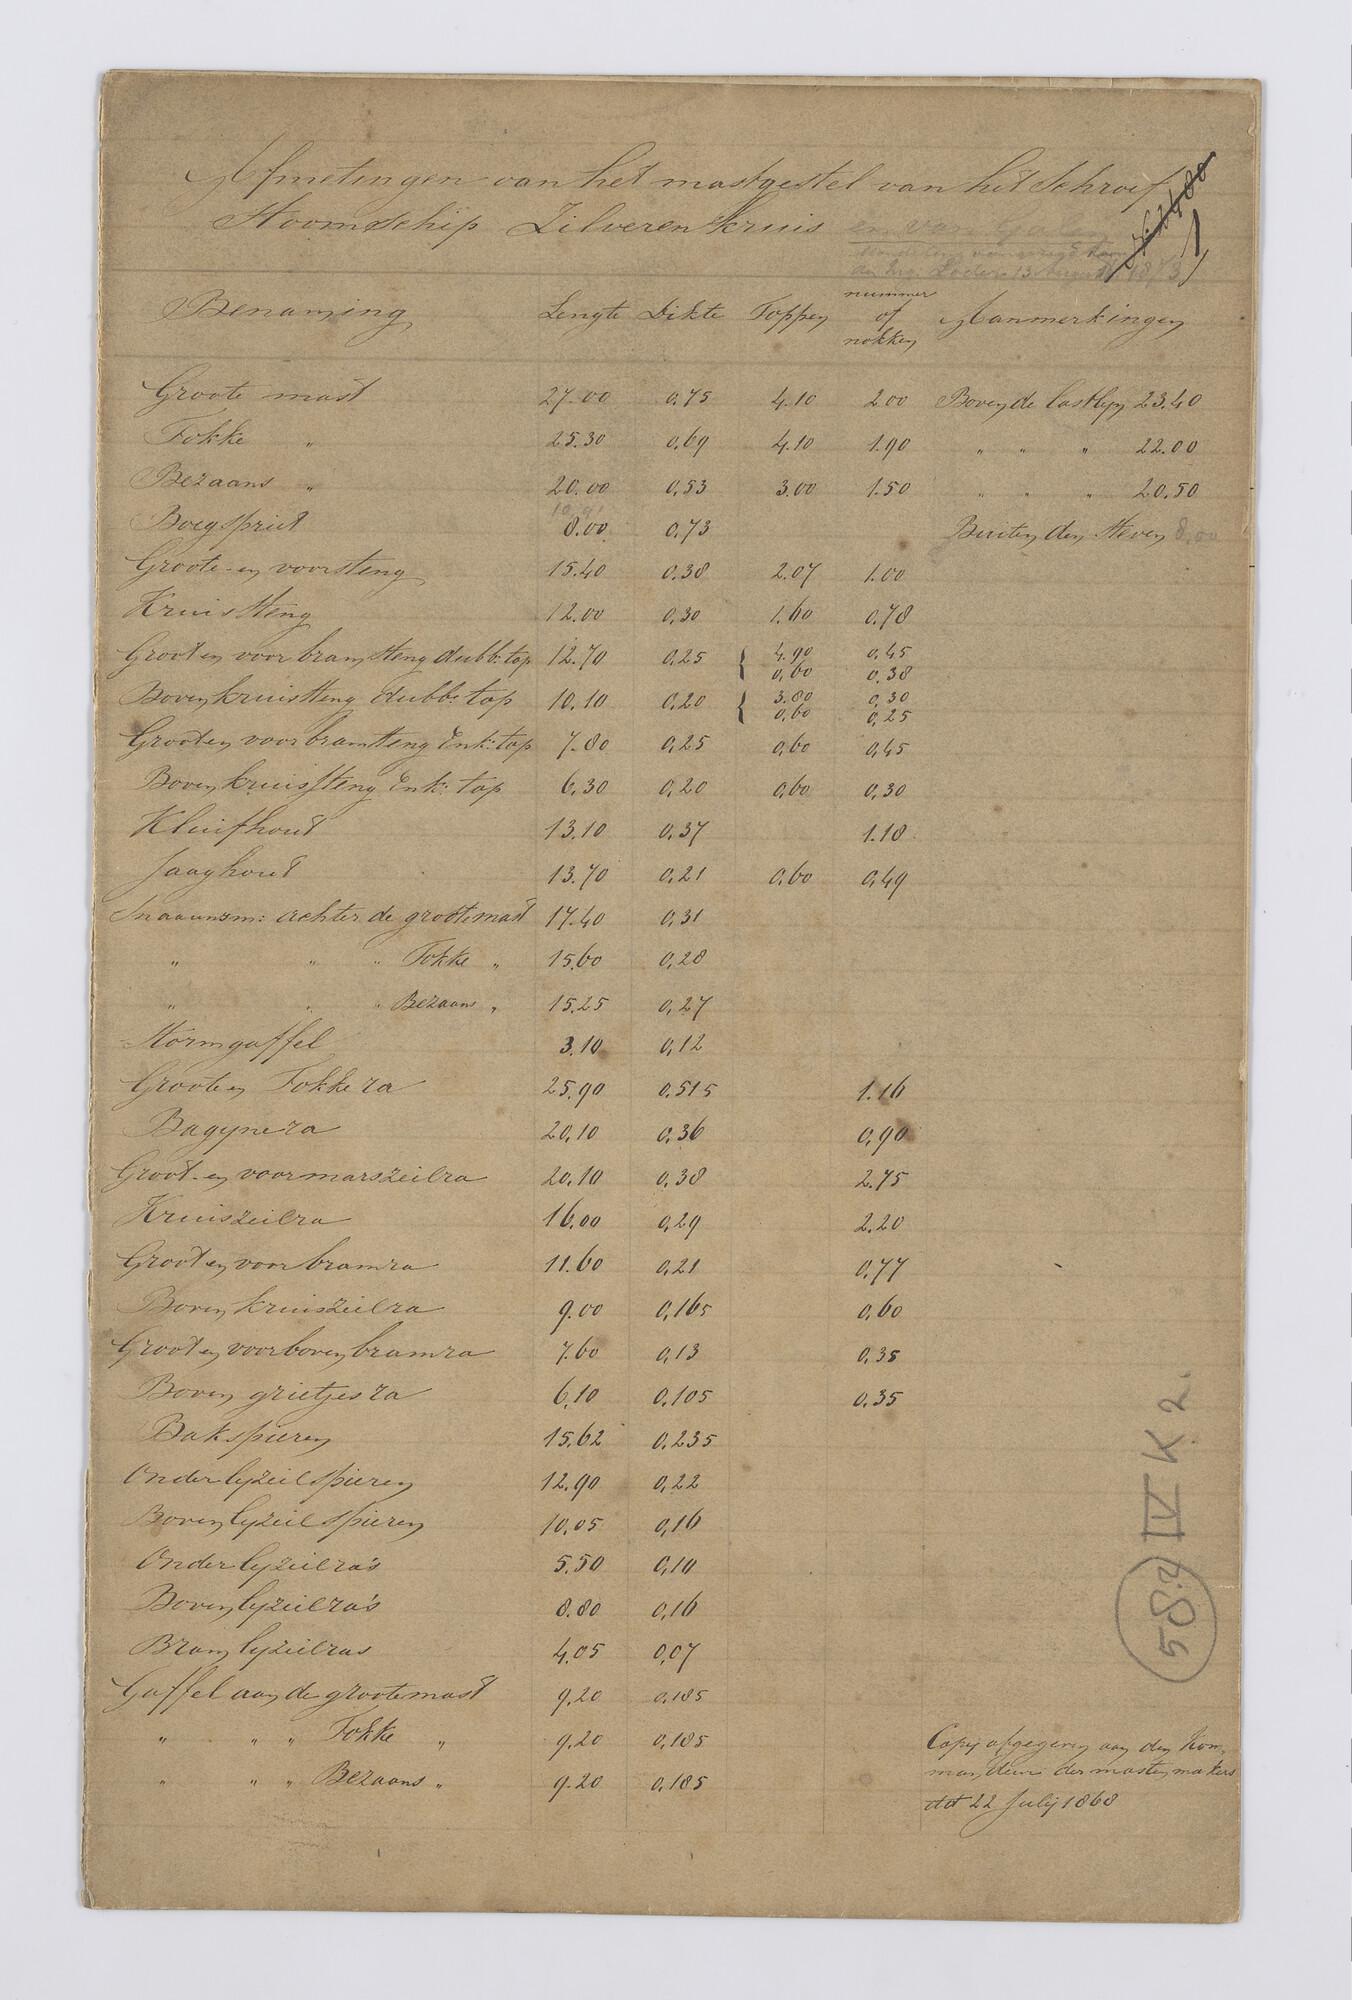 Afmetingen van het mastgestel van het Schroef
Stoomschip Zilverenkruis en van Galen
13 Augs 1873
1
Benaming Lengte Dikte Toppen nummer of nokken Aanmerkingen
Groote mast 27.00 0,75 4.10 2.00 Boven de lastlyn 23.40
Fokke " 25.30 0,69 4.10 1.90 " " " 22.00
Bezaans " 20.00 0,53 3.00 1.50 " " " 20.50
Boegspriet 8.00 0,73 Buiten den Steven 8,00
Groote- en voorsteng 15.40 0,38 2.07 1.00
Kruissteng 12.00 0,30 1.60 0,78
Groot en voor bramsteng dubb: top 12.70 0,25 { 4.90 0,45
0,60 0,38
Bovenkruissteng dubb: top 10.10 0,20 { 3.80 0,30
0,60 0,25
Groot en voor bramsteng Enk: top 7.80 0,25 0,60 0,45
Bovenkruissteng Enk: top 6,30 0,20 0,60 0,30
Kluifhout 13.10 0,37 1.18
Jaaghout 13.70 0,21 0,60 0,49
achter de grootemast 17.40 0,31
" " " Fokke " 15.60 0,28
" " " Bezaans " 15.25 0,27
Stormgaffel 3.10 0,12
Groote en Fokke ra 25.90 0,515 1.16
Bagyne ra 20,10 0,36 0,90
Groot- en voormarszeilra 20,10 0,38 2.75
Kruiszeilra 16.00 0,29 2.20
Groot en voor bramra 11.60 0,21 0,77
Boven kruiszeilra 9.00 0,165 0,60
Groot en voorboven bramra 7.60 0,13 0,35
Boven grietjes ra 6,10 0,105 0,35
Bakspieren 15.62 0,235
Onder lyzeil spieren 12.90 0,22
Boven lyzeil spieren 10,05 0,16
Onder lyzeilra's 5.50 0,10
Boven lyzeilra's 8.80 0,16
Bram lyzeilras 4.05 0,07
Gaffel aan de grootemast 9.20 0,185
" " " Fokke " 9.20 0,185
" " " Bezaans " 9.20 0,185
Copij afgegeven aan den Kom-
mandeur der mastenmakers
dd 22 Julij 1868
582 IV K 2.